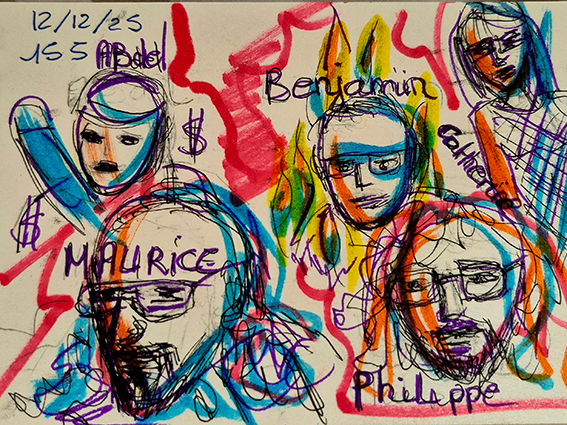 12/12/25
155 ABdel
$
$
Benjamin
Catherine
MAURICE
Philippe